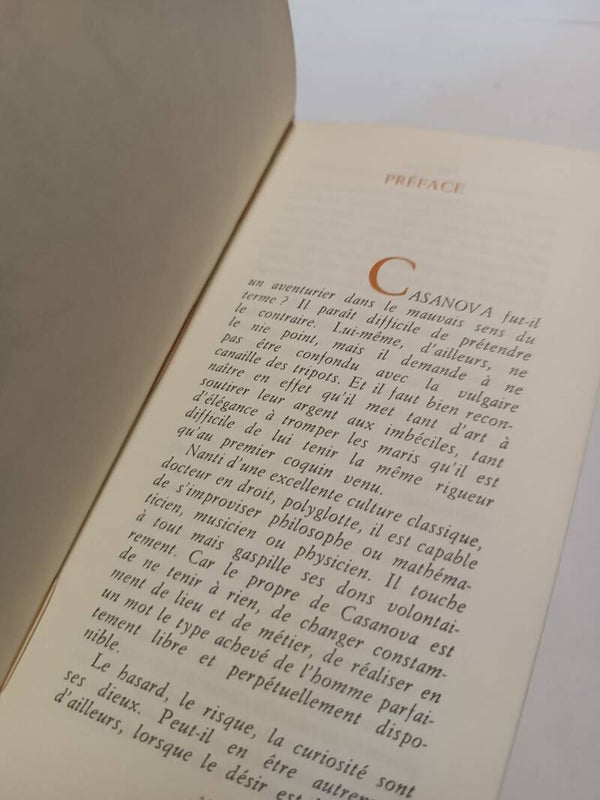 PRÉFACE
CASANOVA fut-il
un aventurier dans le mauvais sens du
terme ? Il paraît difficile de prétendre
le contraire. Lui-même, d'ailleurs, ne
le nie point, mais il demande à ne
pas être confondu avec la vulgaire
canaille des tripots. Et il faut bien recon-
naître en effet qu'il met tant d'art à
soutirer leur argent aux imbéciles, tant
d'élégance à tromper les maris qu'il est
difficile de lui tenir la même rigueur
qu'au premier coquin venu.
Nanti d'une excellente culture classique,
docteur en droit, polyglotte, il est capable
de s'improviser philosophe ou mathéma-
ticien, musicien ou physicien. Il touche
à tout mais gaspille ses dons volontai-
rement. Car le propre de Casanova est
de ne tenir à rien, de changer constam-
ment de lieu et de métier, de réaliser en
un mot le type achevé de l'homme parfai-
tement libre et perpétuellement dispo-
nible.
Le hasard, le risque, la curiosité sont
ses dieux. Peut-il en être autrem
d'ailleurs, lorsque le désir est